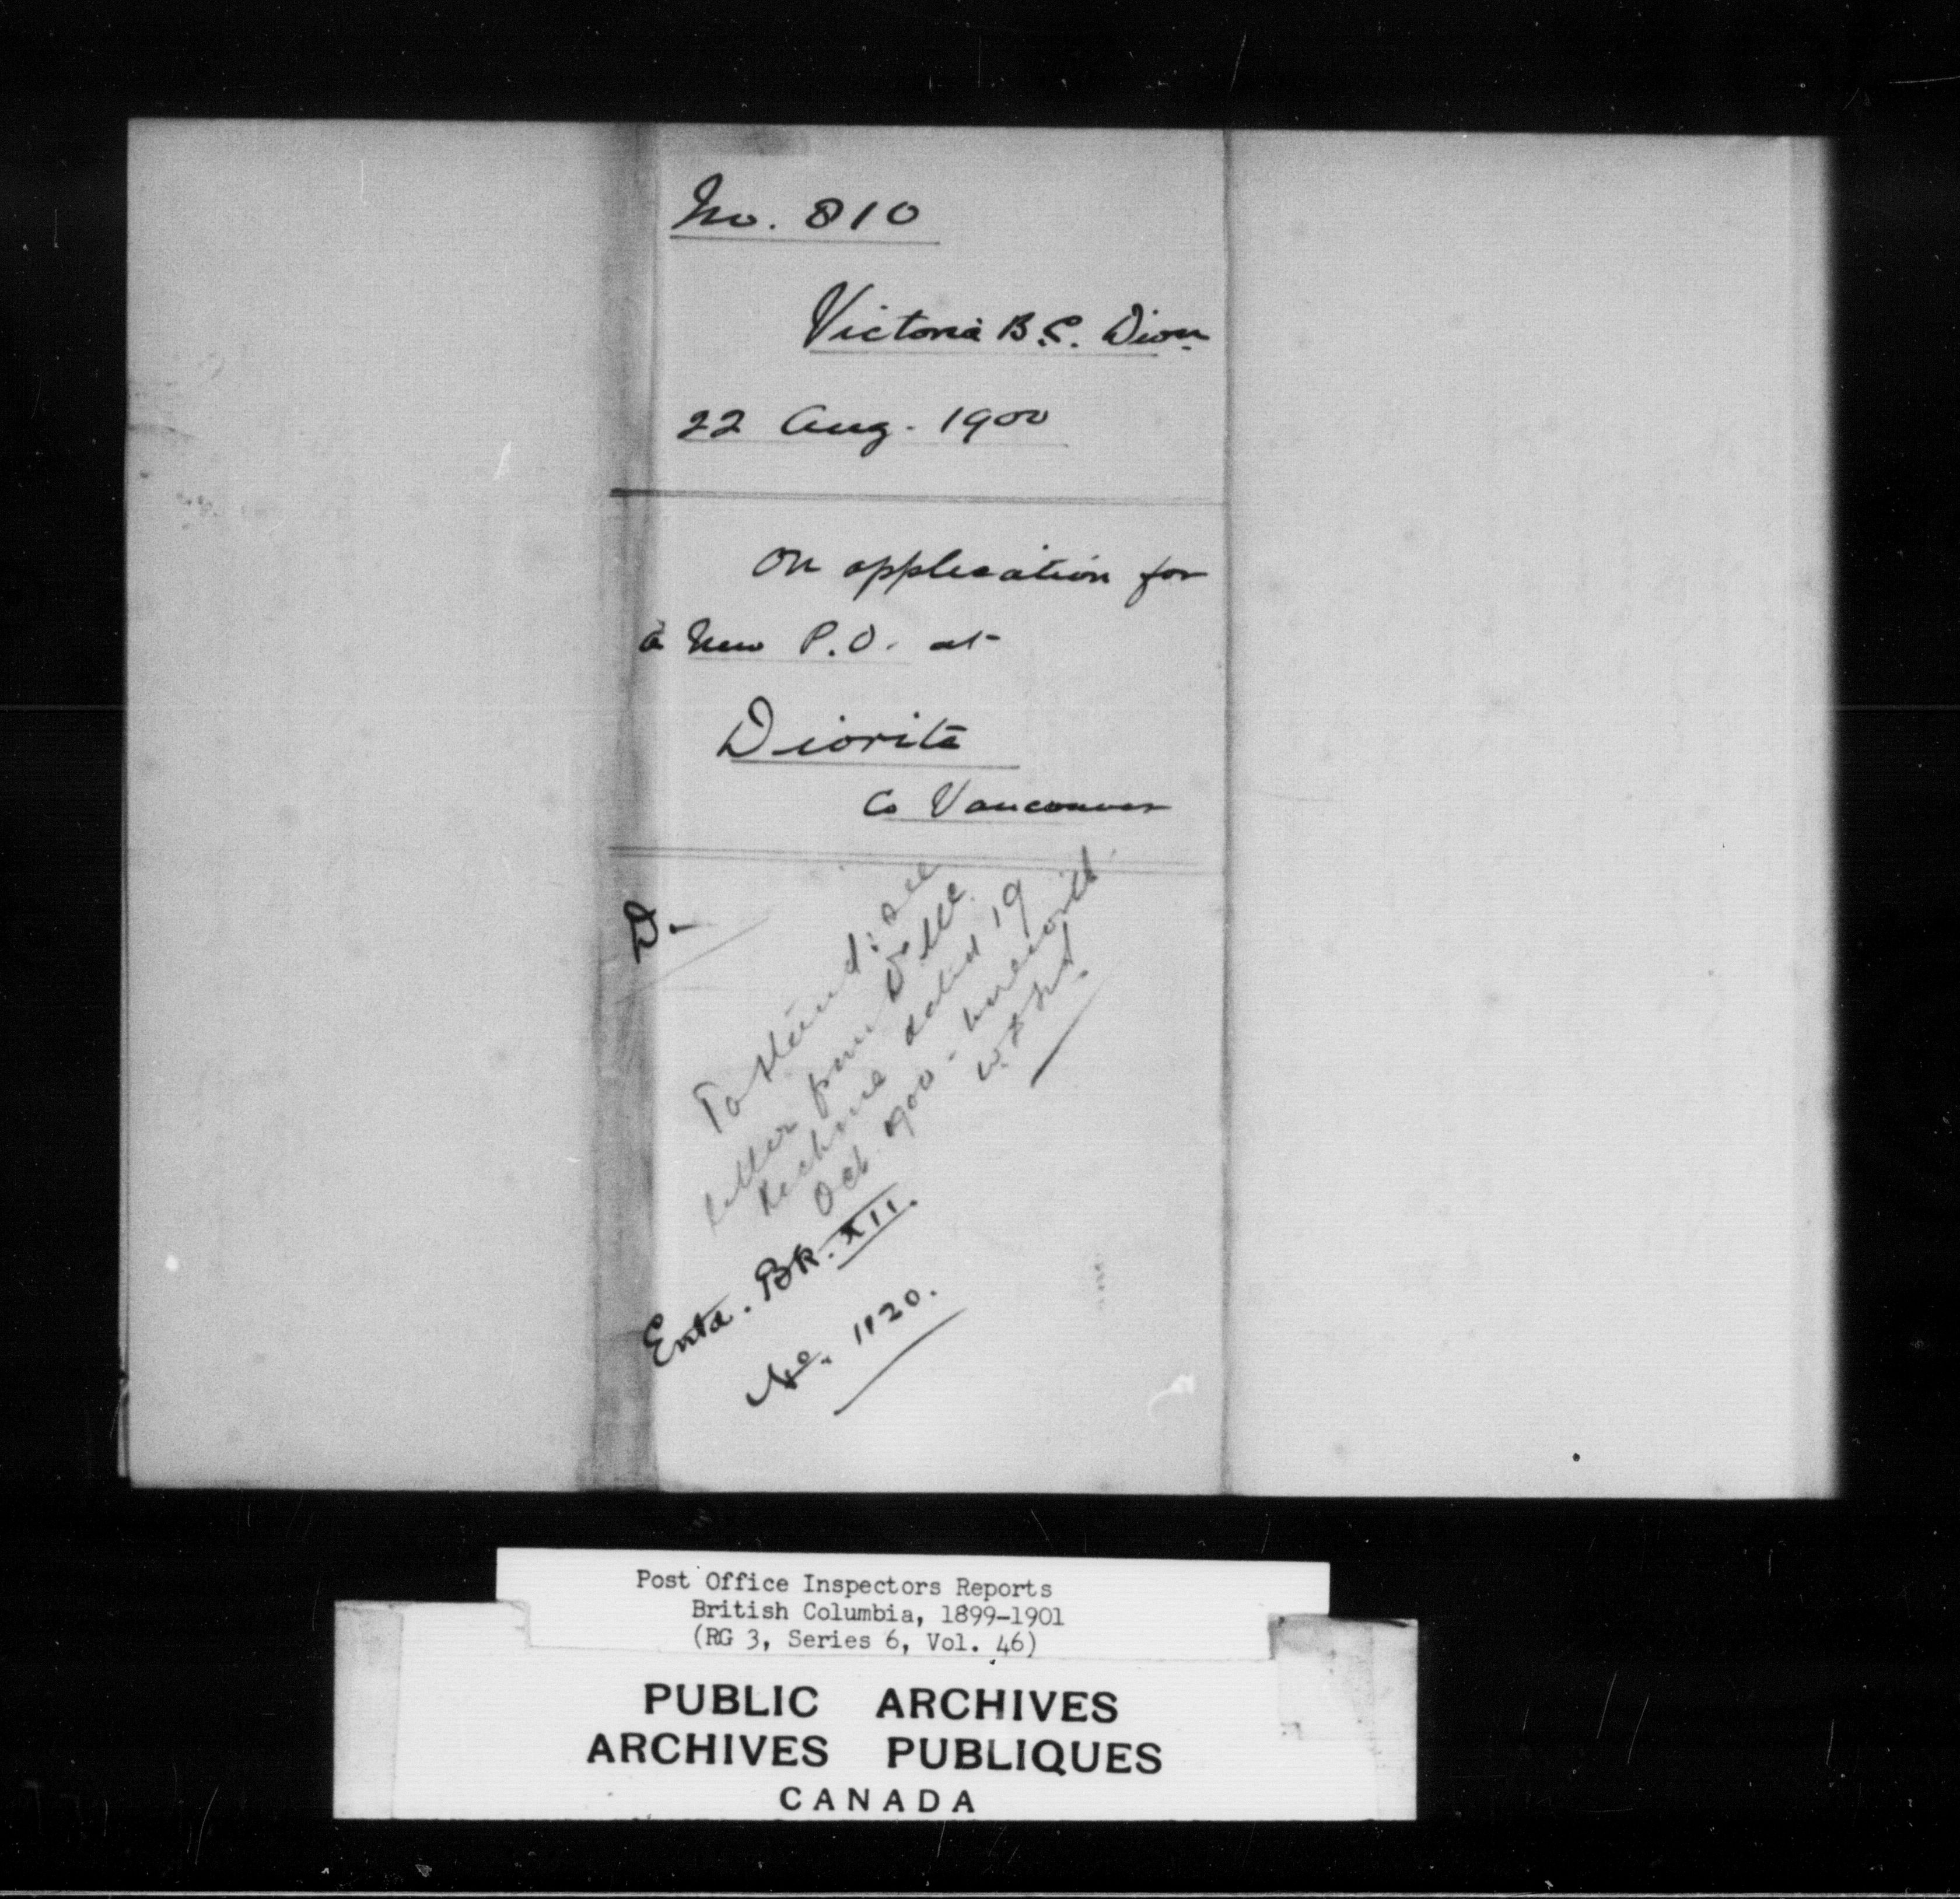 No. 810
Victoria B.C. Dion
22 Aug. 1900
On application for
a New P.O. at
Diorite
Co Vancouver
D.
To stand: see
letter from D.
dated 19
Oct 1900 - herewith
Entd. Bk. XII.
No. 1120.
Post Office Inspectors Reports
British Columbia, 1899-1901
(RG 3, Series 6, Vol. 46)
PUBLIC ARCHIVES
ARCHIVES PUBLIQUES
CANADA